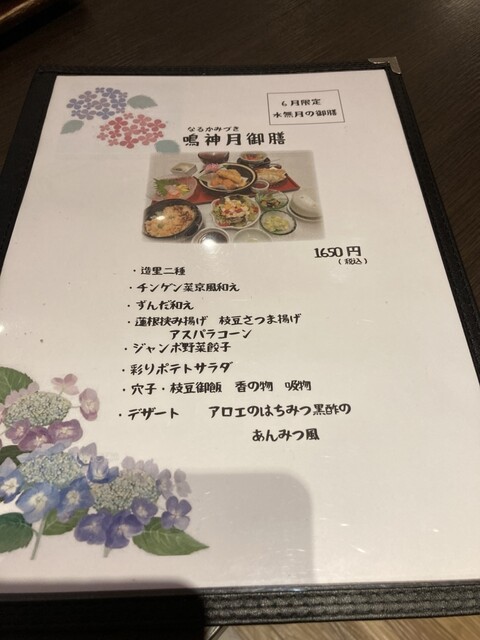 6月限定
水無月の御膳
なるかみづき
鳴神月御膳
1650円
(税込)
・造里二種
・チンゲン菜京風和え
・ずんだ和え
・蓮根挟み揚げ 枝豆さつま揚げ
アスパラコーン
・ジャンボ野菜餃子
・彩りポテトサラダ
・穴子・枝豆御飯 香の物 吸物
・デザート アロエのはちみつ黒酢の
あんみつ風